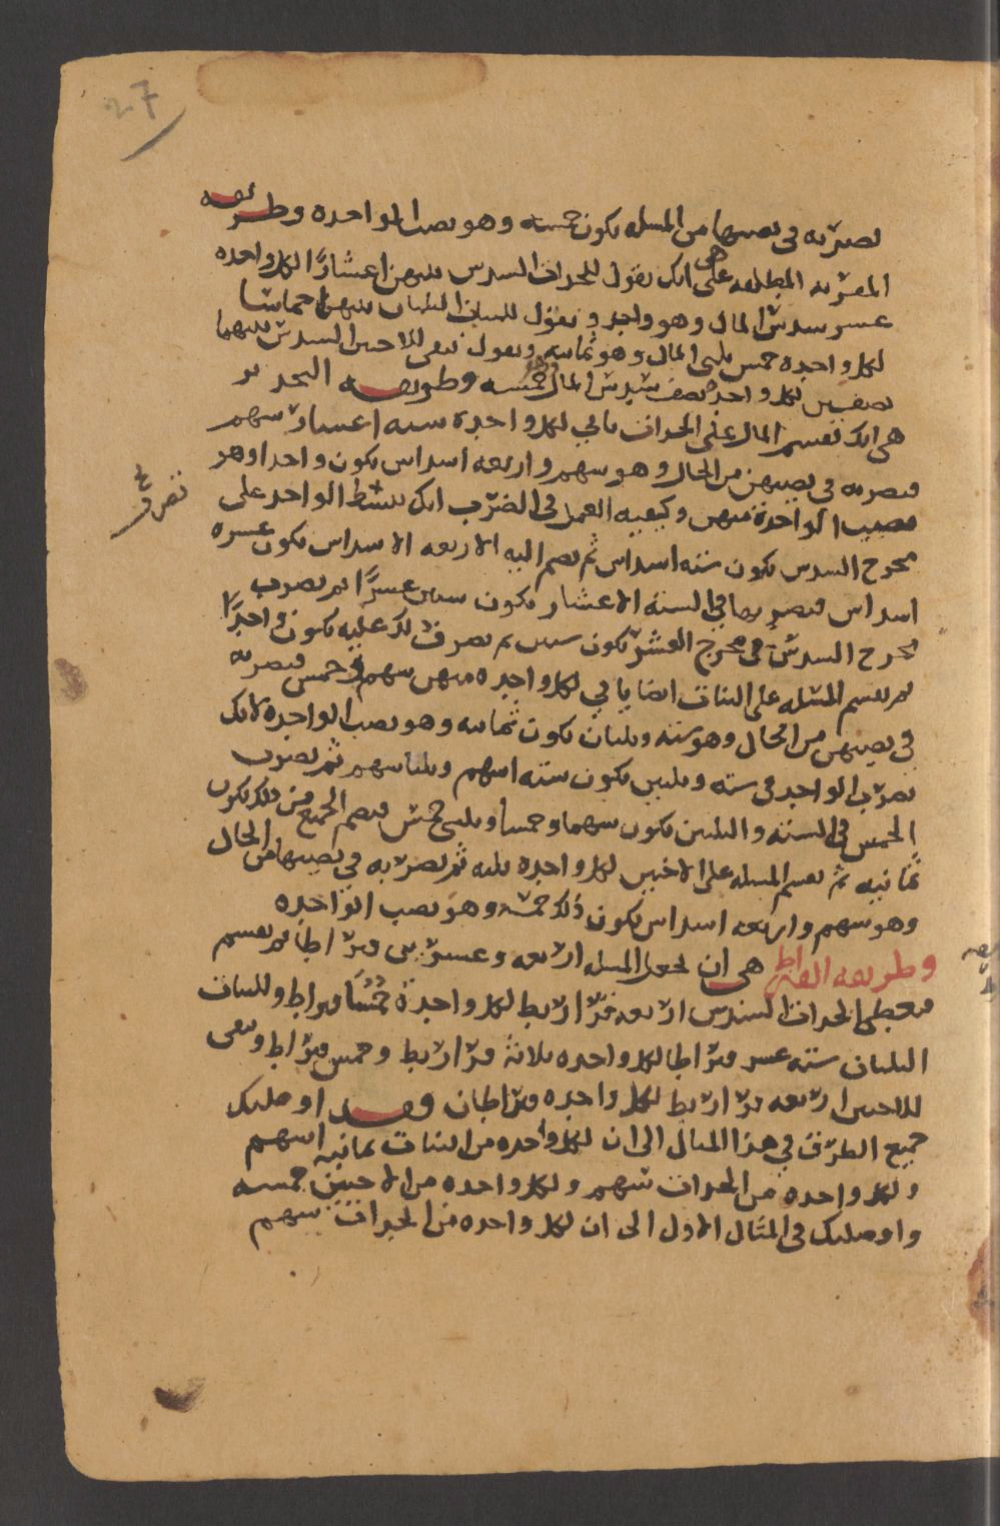 27
تضربه في نصيبها من المسله يكون خمسه وهو نصيب الواحده وطريقه
المعربه المطلقه هي على انك تقول للجدات السدس بينهن اعشارًا لكل واحده
عشر سدس المال وهو واحد وتقول للبنات الثلثان بينهن اخماسًا
لكل واحده خمس ثلثي المال وهو ثمانيه وتقول تبقى للاختين السدس بينهما
نصفين لكل واحده نصف سدس المال وهو خمسه وطريقه
هي انك تقسم المال على الجدات ياتي لكل واحده سته اعشار سهم
فتضربه في نصيبهن من الحال وهو سهم واربعه اسداس يكون واحدا وهو
نصيب الواحده منهن وكيفيه العمل في الضرب انك تبسط الواحد على
مخرج السدس يكون سته اسداس ثم تضم اليه الاربعه الاسداس يكون عشره
اسداس فتضربها في السته الاعشار يكون ستين عشرًا ثم تضرب
مخرج السدس في مخرج العشر يكون ستين ثم تصرف ذلك عليه يكون واحدًا
تصرف
ثم تقسم المسله على البنات ايضا ياتي لكل واحده منهن سهم وخمس فتضربه
في نصيبهن من الحال وهو سته وثلثان يكون ثمانيه وهو نصيب الواحده لانك
تضرب الواحد في سته وثلثين يكون سته اسهم وثلثا سهم ثم تضرب
الخمس في السته والثلثين يكون سهما وخمسا وثلثي خمس فتضم الجميع من ذلك يكون
ثمانيه ثم تقسم المسله على الاختين لكل واحده ثلثه ثم تضربه في نصيبها من الحال
وهو سهم واربعه اسداس يكون ذلك خمسه وهو نصيب الواحده
وطريقه القيراط هي ان تجعل المسله اربعه وعشرين قيراطا ثم تقسم
فتعطي الجدات السدس اربعه قراريط لكل واحدة خمسا قيراط وللبنات
الثلثان سته عشر قيراطا لكل واحده ثلاثة قراريط وخمس قيراط وتبقى
للاختين اربعه قراريط لكل واحده قيراطان وقد اوصلتك
جميع الطرق في هذا المثال الى ان لكل واحده من البنات ثمانيه اسهم
ولكل واحده من الجدات سهم ولكل واحده من الاختين خمسه
واوصلتك في المثال الاول الى ان لكل واحده من الجدات سهم